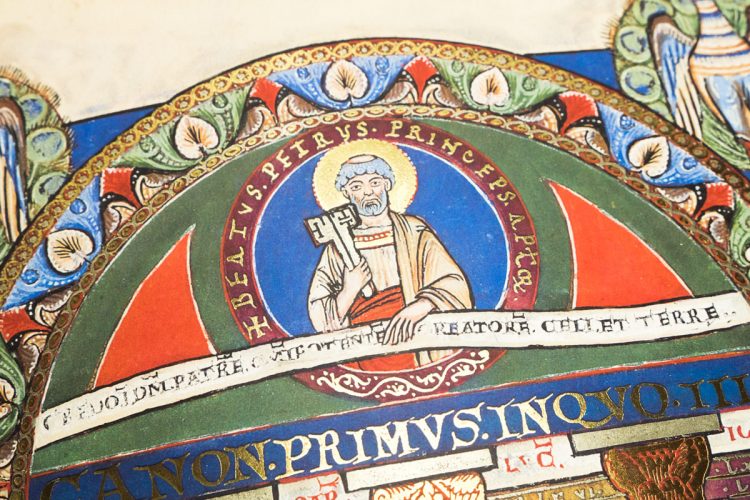 ✠ BEATVS. PETRVS. PRINCEPS. APTOꝜ
CREDO I DM̄. PATRĒ. OM̄IPOTENTĒ CREATORĒ. CELI. ET TERRE
CANON. PRIMVS. IN QVO. IIII